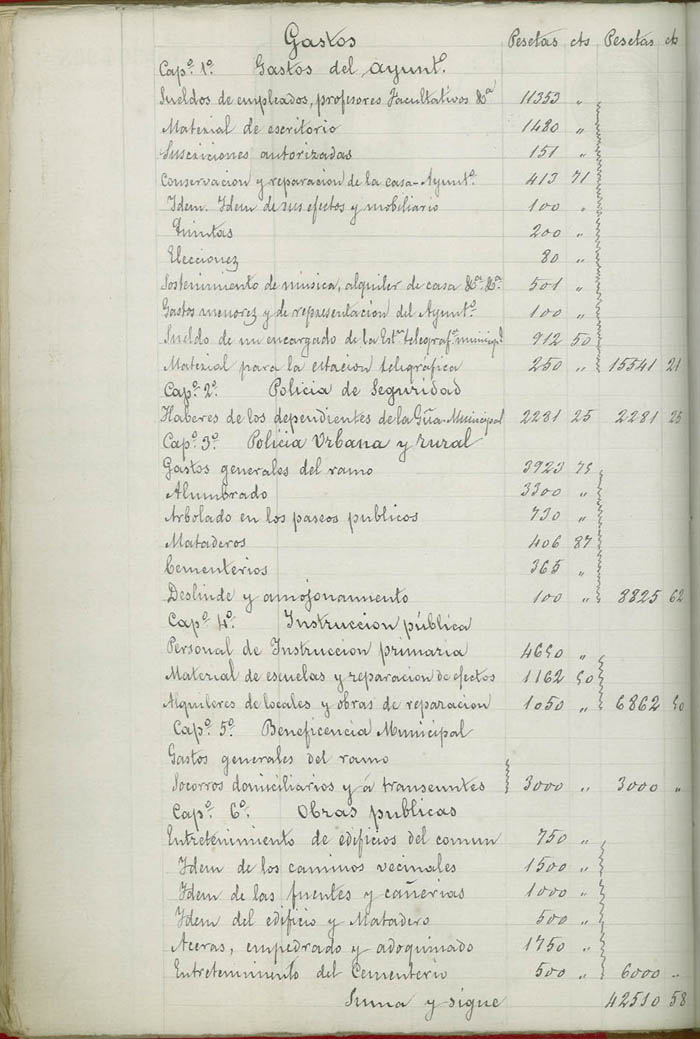 Gastos Pesetas cts Pesetas cts
Capº. 1º. Gastos del Ayuntº.
Sueldos de empleados, profesores Facultativos &ª 11353 "
Material de escritorio 1480 "
Suscriciones autorizadas 151 "
Conservacion y reparacion de la casa-Ayuntº. 413 71
Idem. Idem de sus efectos y mobiliario 100 "
Quintas 200 "
Elecciones 80 "
Sostenimiento de musica, alquiler de casa &ª. &ª. 501 "
Gastos menores y de representacion del Ayuntº. 100 "
Sueldo de un encargado de la Estⁿ telegrafª. municipl 912 50
Material para la estacion telegráfica 250 " 15541 21
Capº. 2º. Policia de Seguridad
Haberes de los dependientes de la Gûa-Municipal 2281 25 2281 25
Capº. 3º. Policia Urbana y rural
Gastos generales del ramo 3923 75
Alumbrado 3300 "
Arbolado en los paseos publicos 730 "
Mataderos 406 87
Cementerios 365 "
Deslinde y amojonamiento 100 " 8825 62
Capº. 4º. Instruccion pública
Personal de Instruccion primaria 4650 "
Material de escuelas y reparacion de efectos 1162 50
Alquileres de locales y obras de reparacion 1050 " 6862 50
Capº. 5º. Beneficencia Municipal
Gastos generales del ramo
Socorros domiciliarios y á transeuntes 3000 " 3000 "
Capº. 6º. Obras publicas
Entretenimiento de edificios del comun 750 "
Idem de los caminos vecinales 1500 "
Idem de las fuentes y cañerias 1000 "
Idem del edificio y Matadero 500 "
Aceras, empedrado y adoquinado 1750 "
Entretenimiento del Cementerio 500 " 6000 "
Suma y sigue 42510 58